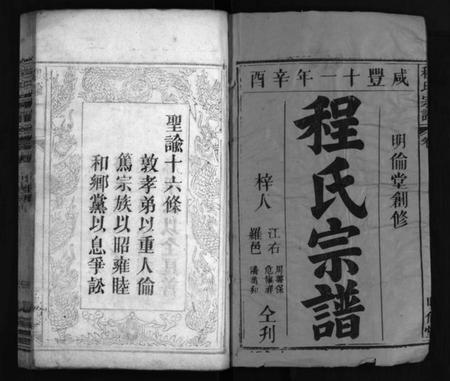 咸豐十一年辛酉
明倫堂創修
程氏宗譜
梓人
江右
羅邑
仝刊
聖諭十六條
敦孝弟以重人倫
篤宗族以昭雍睦
和鄉黨以息爭訟